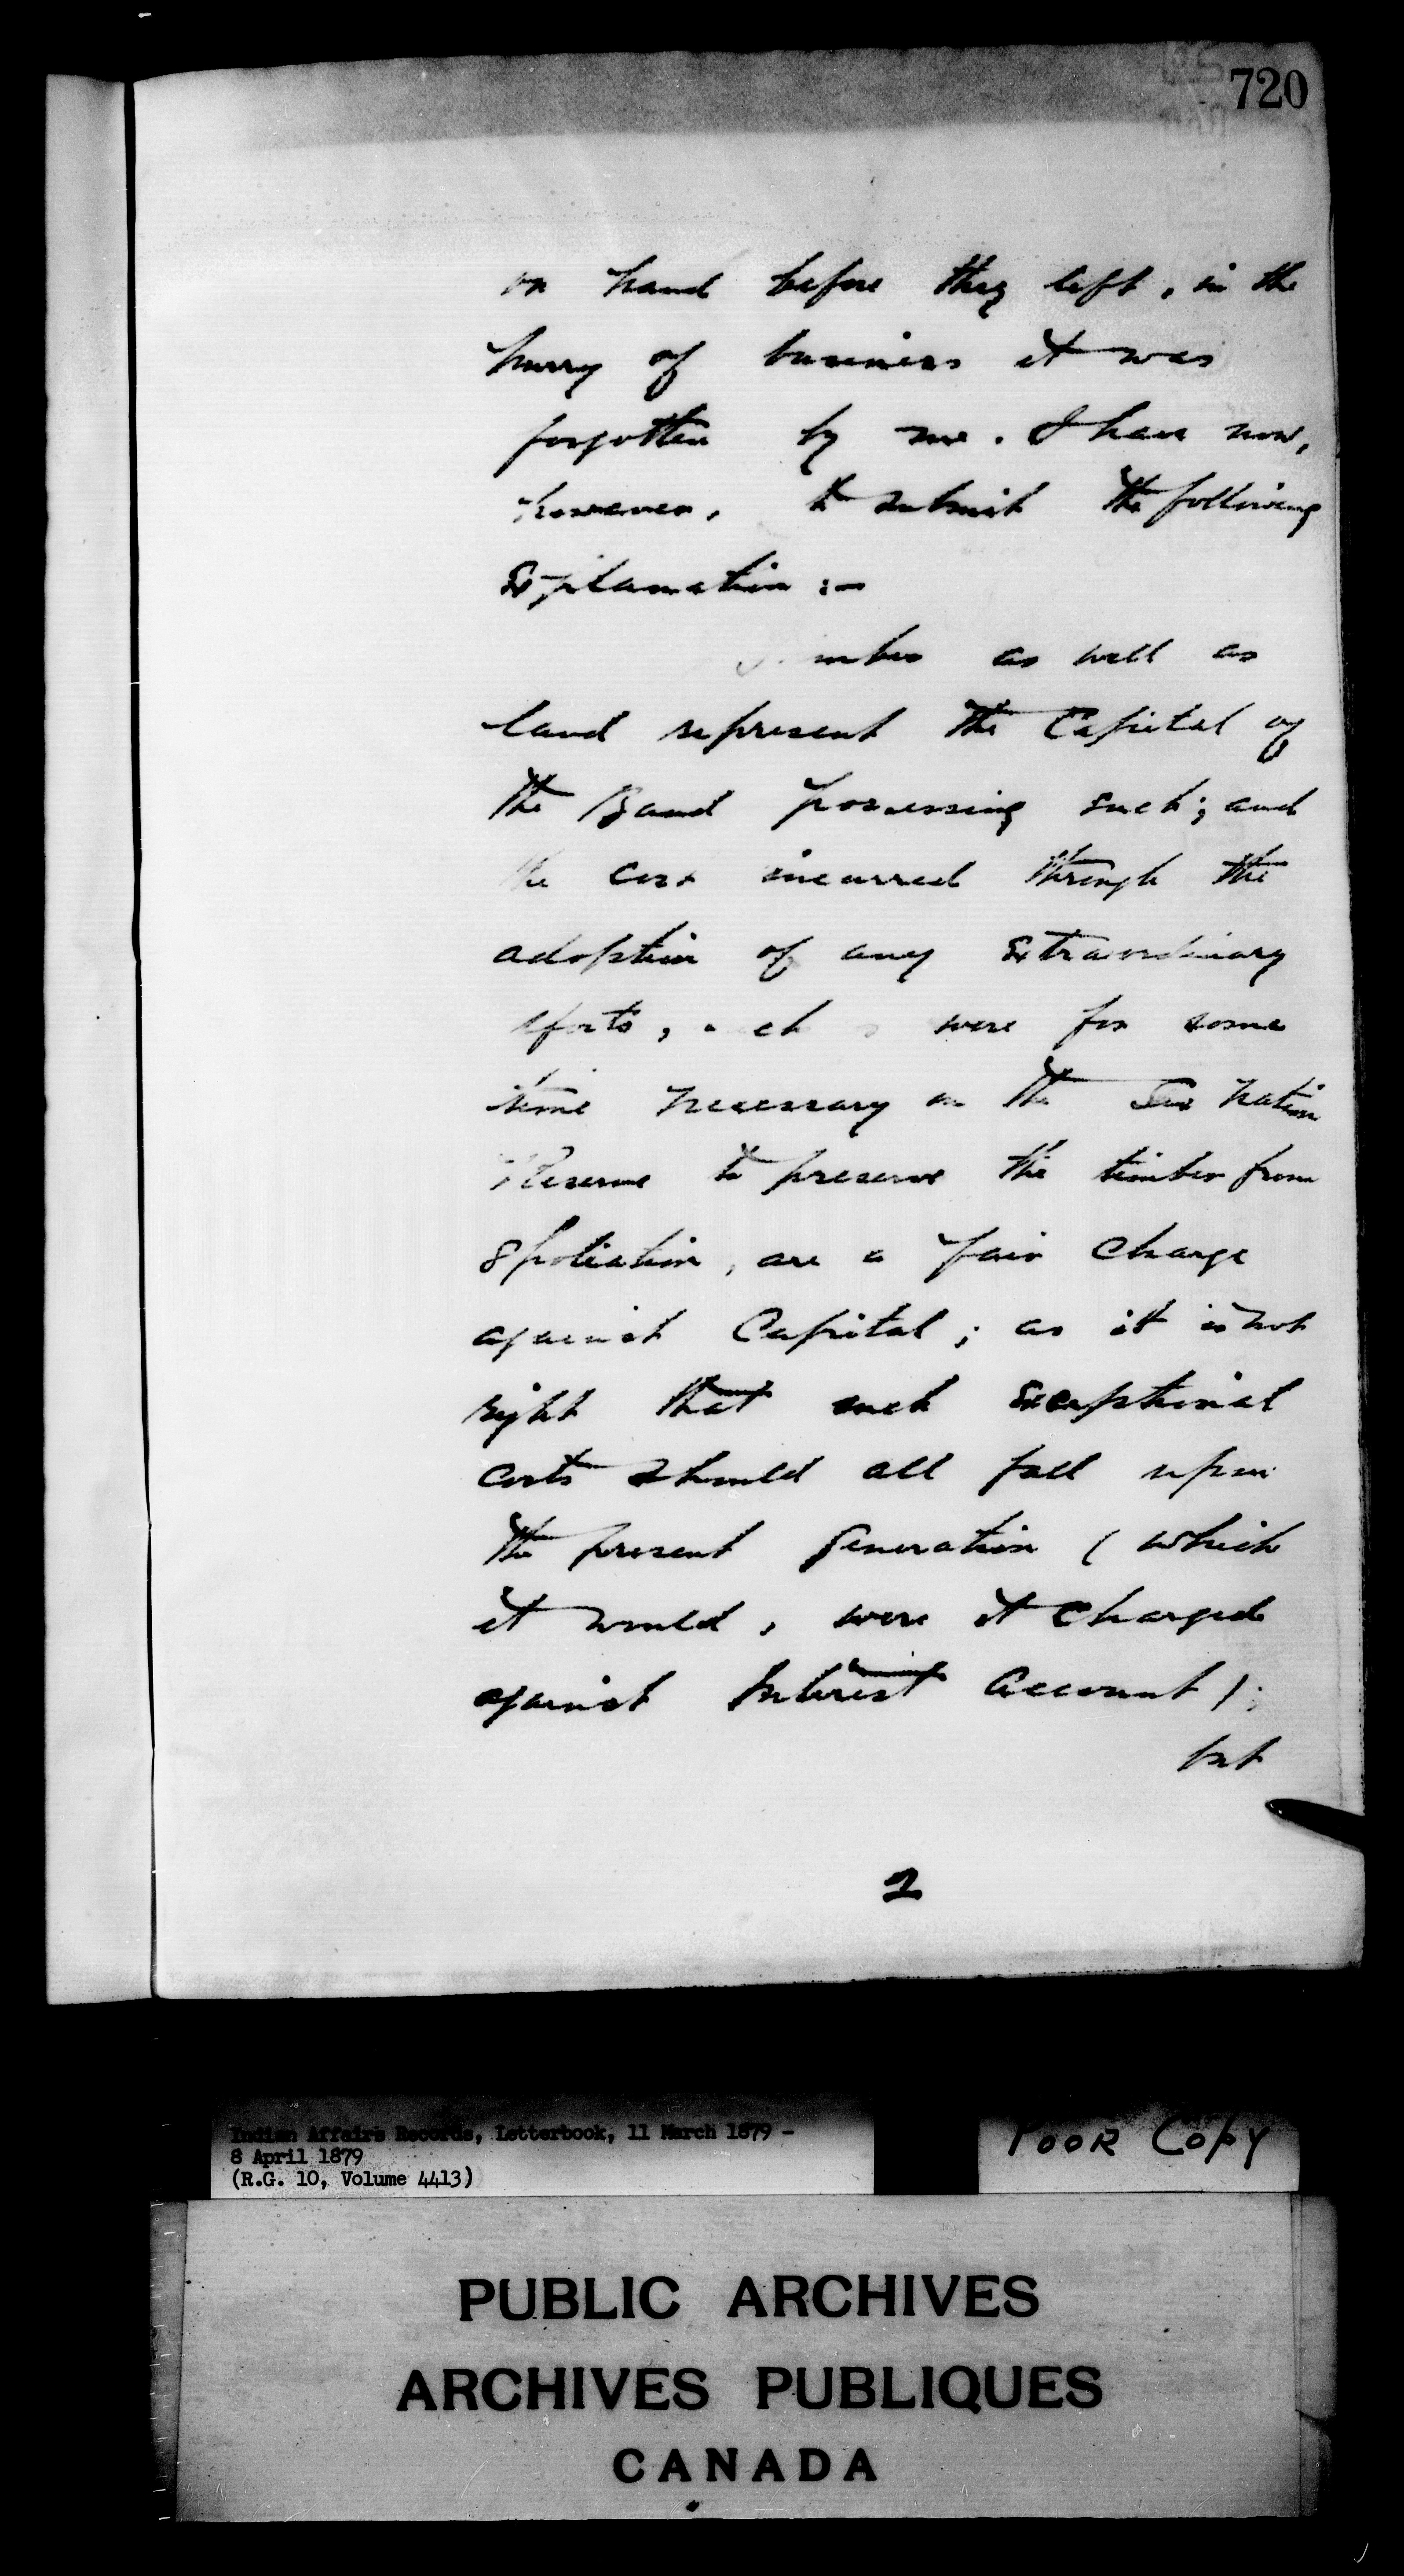 720
on hand before they left, in the
hurry of business it was
forgotten by me. I have now,
however, to submit the following
Explanation :-
Timber as well as
land represent the Capital of
the Band possessing such; and
the cost incurred through the
adoption of any Extraordinary
efforts, such as were for some
time necessary on the Six Nation
Reserve to preserve the timber from
Spoliation, are a fair Charge
against Capital; as it is not
right that such Exceptional
costs should all fall upon
the present generation (which
it would, were it Charged
against Interest Account);
but
2
Indian Affairs Records, Letterbook, 11 March 1879 -
8 April 1879
(R.G. 10, Volume 4413)
POOR COPY
PUBLIC ARCHIVES
ARCHIVES PUBLIQUES
CANADA